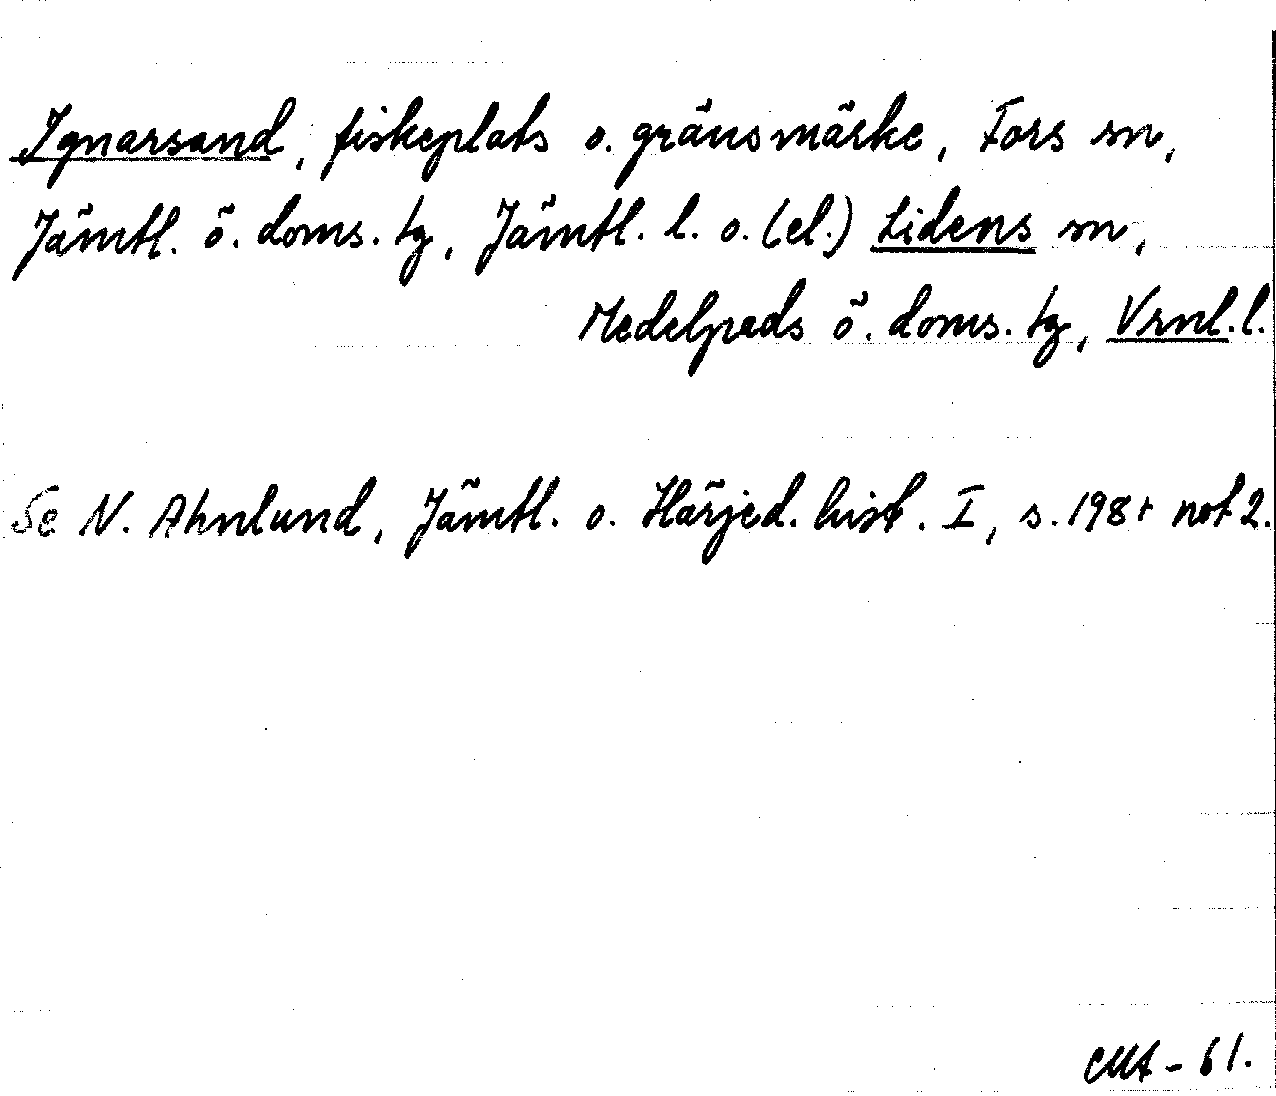 Ignarsand, fiskeplats o. gränsmärke, Fors sn,
Jämtl. ö. doms. tg, Jämtl. l. o. (el.) Lidens sn,
Medelpads ö. doms. tg, Vrnl. l.
Se N. Ahnlund, Jämtl. o. Härjed. hist. I, s. 198 + not 2.
- 61.